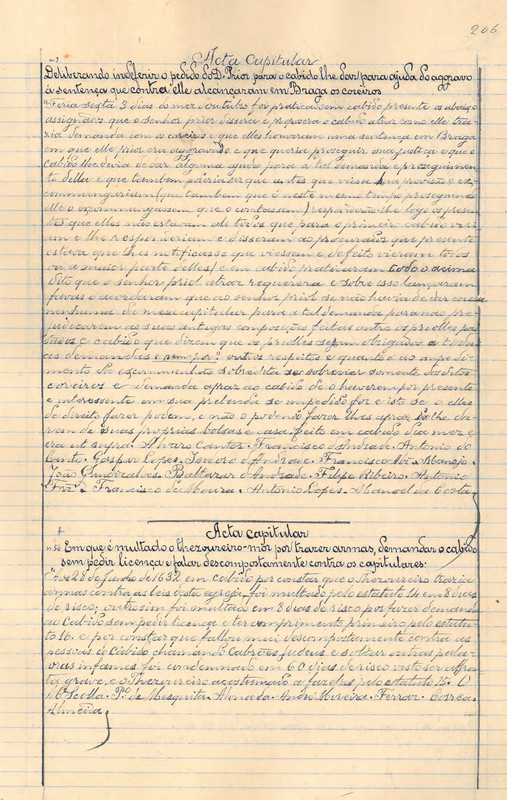 206
Acta Capitular
Deliberando indeferir o pedido do D. Prior para o cabido lhe dar para ajuda do aggravo
á sentença que contra elle alcançaram em Braga os coreiros
Feria sexta 3 dias do mez d'outubro foi praticado em cabido presente os abaixo
assignados que o senhor prior dissera e propozera o cabido ativo como elle tra
zia demanda com os coreiros e que elles houveram uma sentença em Braga
em que elle prior era aggravado e que queria proseguir sua justiça e que o
cabido lhe devia de dar alguma ajuda para a tal demanda e proseguimen
to della e que tambem poderia ser que antes que viesse sua provisão e ex-
commungarium (que tambem que é neste mesmo tempo proseguindo
elle o excommungassem que o contassem) responderão-lhe logo os presen
tes que elles não estavam ali todos que para o primeiro cabido viri
am e lhe responderiam e disseram ao procurador que presente
estava que lhes notificasse que viessem e de feito vieram todos
ou a maior parte delles e em cabido praticaram todo o acima
dito que o senhor priol atraz requerera e sobre isso lançaram
favas e acordaram que ao senhor priol se não havia de dar cousa
nenhuma da mesa capitular para a tal demanda por não pre-
judicarem as suas antigas composições feitas antre os preelles pas
sados e cabido que dizem que os preelles sejam obrigados a todas
as demandas e sem por? outros respeitos e quanto ao impedi-
mento da excommunhão sobredita se sobrevier somente dos ditos
coreiros e demanda apraz ao cabido de o haverem por presente
e interessente em sua pretenda se impedido for e isto se o elles
de direito fazer podem, e não o podendo fazer lhes apraz de lhe da-
rem de suas proprias bolsas e casa. feito em cabido dia mez e
era ut supra. Alvaro Cantor. Francisco d'Andrade. Antonio do
Canto. Gaspar Lopes. Izidoro d'Andrade. Francisco
João Gonçalves. Baltazar d'Andrade. Filipe Ribeiro. Antonio
Frz. Francisco de Moura. Antonio Lopes. Manoel da Costa
Acta capitular
Em que é multado o thezoureiro-mór por trazer armas, demandar o cabido
sem pedir licença e falar descompostamente contra os capitulares:
Aos 28 de junho de 1632 em cabido por constar que o Thezoureiro trazia
armas contra as leis desta egreja, foi multado pelo estatuto 14 em 8 dias
de risco; outrosim foi multado em 8 dias de risco por fazer demanda
ao Cabido sem pedir licença e ter comprimento primeiro pelo estatu-
to 16. e por constar que fallou mui descompostamente contra as
pessoas do Cabido chamando Cabrões, judeus e soltar outras pala-
vras infames foi condemnado em 60 dias de risco visto ser affron
ta grave, e o Thezoureiro acostumado a fazel-as pelo estatuto 15. O
Pº. de Mesquita. Almada. André Moreira. Ferraz. Correa
Almeida